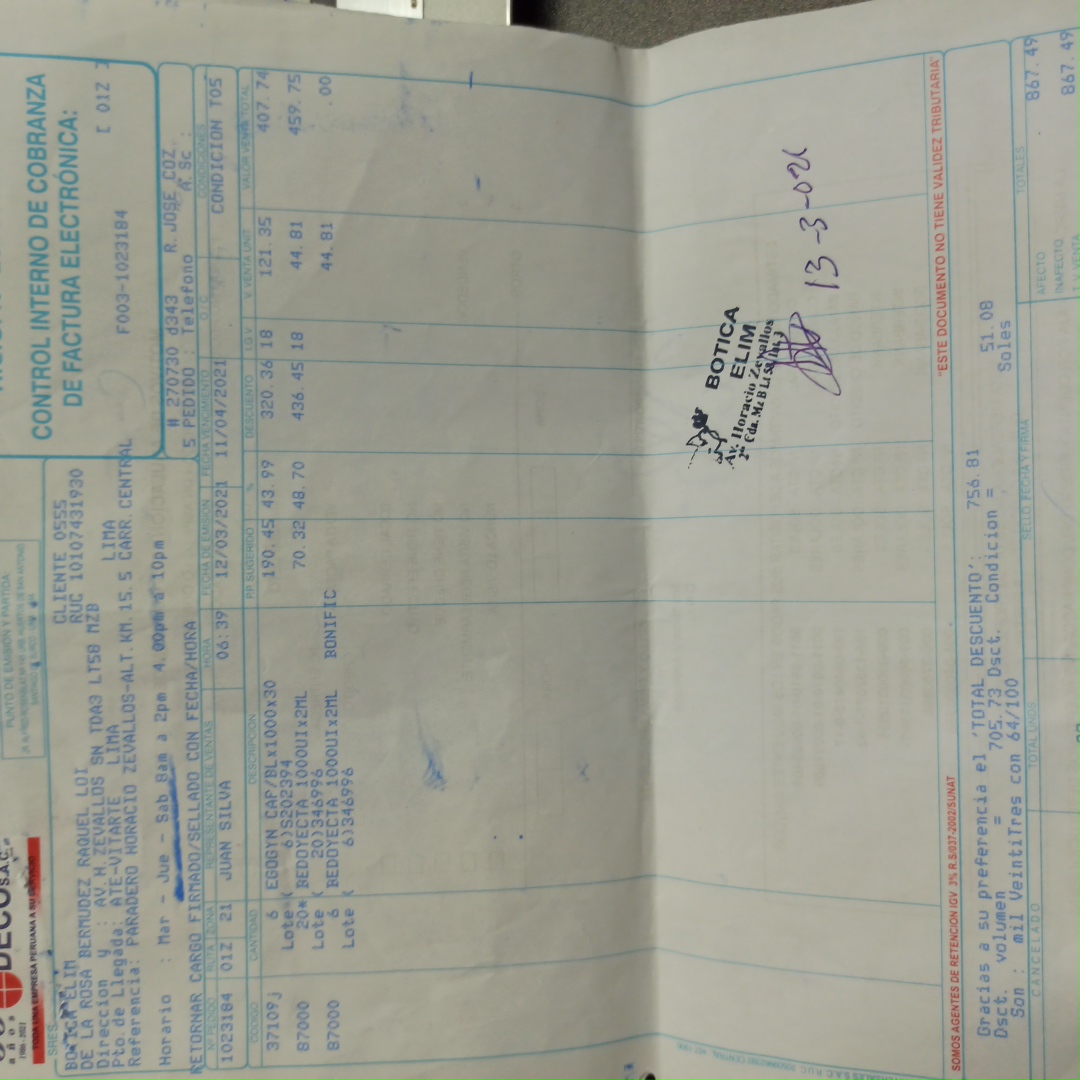 DECO S.A.C.
1986 - 2021
TODA UNA EMPRESA PERUANA A SU SERVICIO
PUNTO DE EMISIÓN Y PARTIDA:
CONTROL INTERNO DE COBRANZA
DE FACTURA ELECTRÓNICA:
F003-1023184 [ 01Z ]
SRES.
BOTICA ELIM CLIENTE 0555
DE LA ROSA BERMUDEZ RAQUEL LOI RUC 10107431930
Direccion y : AV.H.ZEVALLOS SN TDA3 LT58 MZB
Pto.de Llegada: ATE-VITARTE LIMA LIMA
Referencia: PARADERO HORACIO ZEVALLOS-ALT.KM.15.5 CARR.CENTRAL
# 270730 d343 R.JOSE COZ
Horario : Mar - Jue - Sab 8am a 2pm 4.00pm a 10pm
5 PEDIDO : Telefono A.Sc :
RETORNAR CARGO FIRMADO/SELLADO CON FECHA/HORA
Nº PEDIDO RUTA ZONA REPRESENTANTE DE VENTAS HORA FECHA DE EMISIÓN FECHA VENCIMIENTO O/C CONDICIONES
1023184 01Z 21 JUAN SILVA 06:39 12/03/2021 11/04/2021 CONDICION T05
CÓDIGO CANTIDAD DESCRIPCIÓN P.P. SUGERIDO % DESCUENTO I.G.V V. VENTA UNIT. VALOR VENTA TOTAL
37109j 6 EGOGYN CAP/BLx1000x30 190.45 43.99 320.36 18 121.35 407.74
Lote( 6)S202394
87000 20* BEDOYECTA 1000UIx2ML 70.32 48.70 436.45 18 44.81 459.75
Lote ( 20)346996
87000 6 BEDOYECTA 1000UIx2ML BONIFIC 44.81 .00
Lote ( 6)346996
BOTICA
ELIM
Av. Horacio Zevallos
13-3-021
SOMOS AGENTES DE RETENCION IGV 3% R.S/037-2002/SUNAT
"ESTE DOCUMENTO NO TIENE VALIDEZ TRIBUTARIA"
Gracias a su preferencia el 'TOTAL DESCUENTO': 756.81
Dsct. volumen = 705.73 Dsct. Condicion = 51.08
Son : mil VeintiTres con 64/100 Soles
CANCELADO
TOTAL UNDS.
SELLO FECHA Y FIRMA
TOTALES
AFECTO 867.49
INAFECTO
T. V. VENTA 867.49